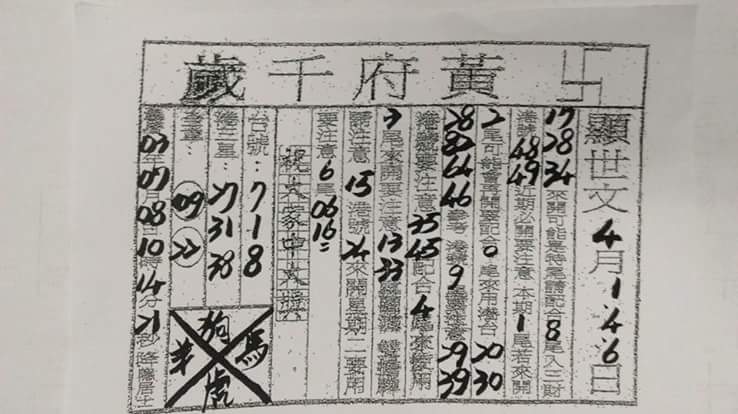 黃府千歲
顯世文 4月1.4.6日
17 28 34 來開可能要特尾請配合8尾入三財
港號 48 49 近期必開要注意 本期1尾若來開
2尾可能會再開要配合0尾來用港台 20 30
28 82 64 46 參考 港號 9 注意 29 39
要注意 35 45 配合 4 尾來使用
3尾來開要注意 13 33
需注意 15 港號 24 來開星期二要用
要注意 6尾 06 16
祝大家中大獎
台號: 7 1 8
港三星: 27 31 38
09 22
狗 馬 羊 虎
年07月08日10時14分21秒降